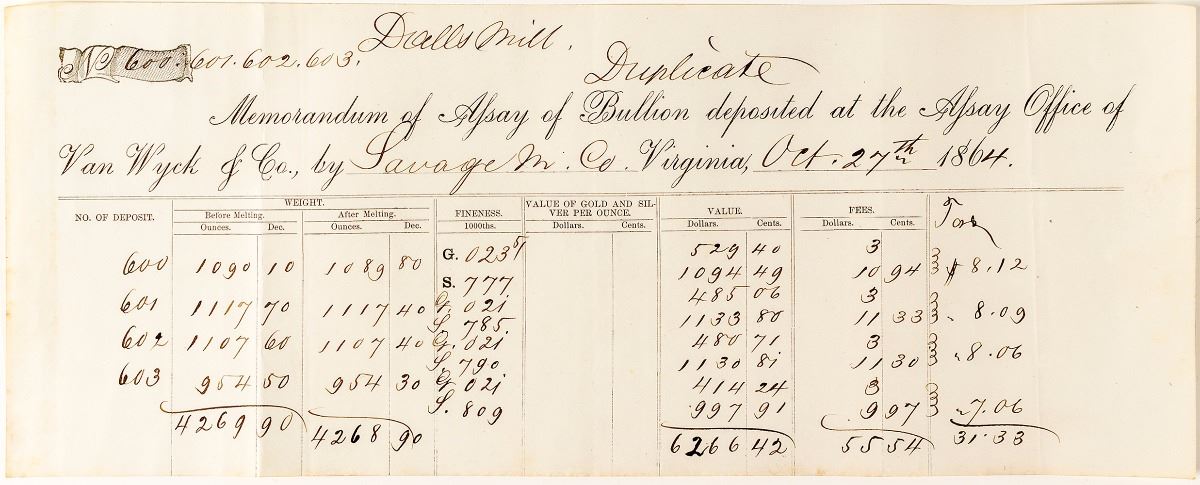 Dalls Mill.
No 600. 601. 602. 603.
Duplicate
Memorandum of Aſsay of Bullion deposited at the Aſsay Office of
Van Wyck & Co., by Savage M. Co. Virginia, Oct. 27th 1864.
NO. OF DEPOSIT. WEIGHT. FINENESS. VALUE OF GOLD AND SILVER PER OUNCE. VALUE. FEES. Tax
Before Melting. After Melting. 1000ths. Dollars. Cents. Dollars. Cents. Dollars. Cents.
Ounces. Dec. Ounces. Dec.
G. 023½ 529 40 3
600 1090 10 1089 80 S. 777 1094 49 10 94 $8.12
601 1117 70 1117 40 G. 021 485 06 3
S. 785. 1133 80 11 33 " 8.09
602 1107 60 1107 40 G. 021 480 71 3
S. 790 1130 81 11 30 " 8.06
603 954 50 954 30 G. 021 414 24 3
S. 809 997 91 9 97 " 7.06
4269 90 4268 90 6266 42 55 54 31.33